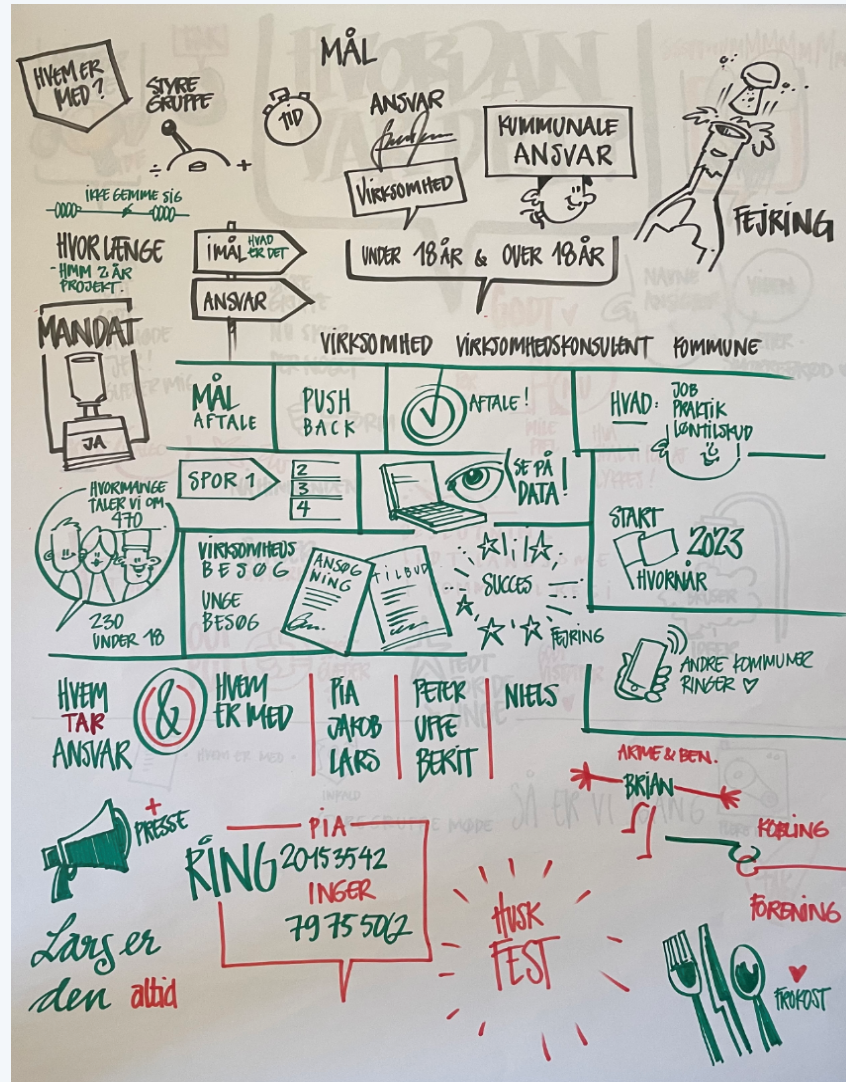 MÅL
HVEM ER
MED?
STYRE
GRUPPE
÷ +
TID
ANSVAR
VIRKSOMHED
KUMMUNALE
ANSVAR
FEJRING
IKKE GEMME SIG
HVOR LÆNGE
- HMM 2 ÅR
PROJEKT.
I MÅL HVAD
ER DET
ANSVAR
UNDER 18 ÅR & OVER 18 ÅR
MANDAT
JA
VIRKSOMHED VIRKSOMHEDSKONSULENT KOMMUNE
MÅL
AFTALE
PUSH
BACK
AFTALE!
HVAD: JOB
PRAKTIK
LØNTILSKUD
SPOR 1
2
3
4
SE PÅ
DATA!
HVORMANGE
TALER VI OM
470
230
UNDER 18
VIRKSOMHEDS
BESØG
UNGE
BESØG
ANSØG
NING
TILBUD
SUCCES
FEJRING
START
2023
HVORNÅR
ANDRE KOMMUNER
RINGER ♡
HVEM
TAR
ANSVAR
&
HVEM
ER MED
PIA
JAKOB
LARS
PETER
UFFE
BERIT
NIELS
ARME & BEN.
BRIAN
KOBLING
FORENING
+
PRESSE
PIA
RING 20153542
INGER
79 75 5062
Lars er
den altid
HUSK
FEST
FROKOST